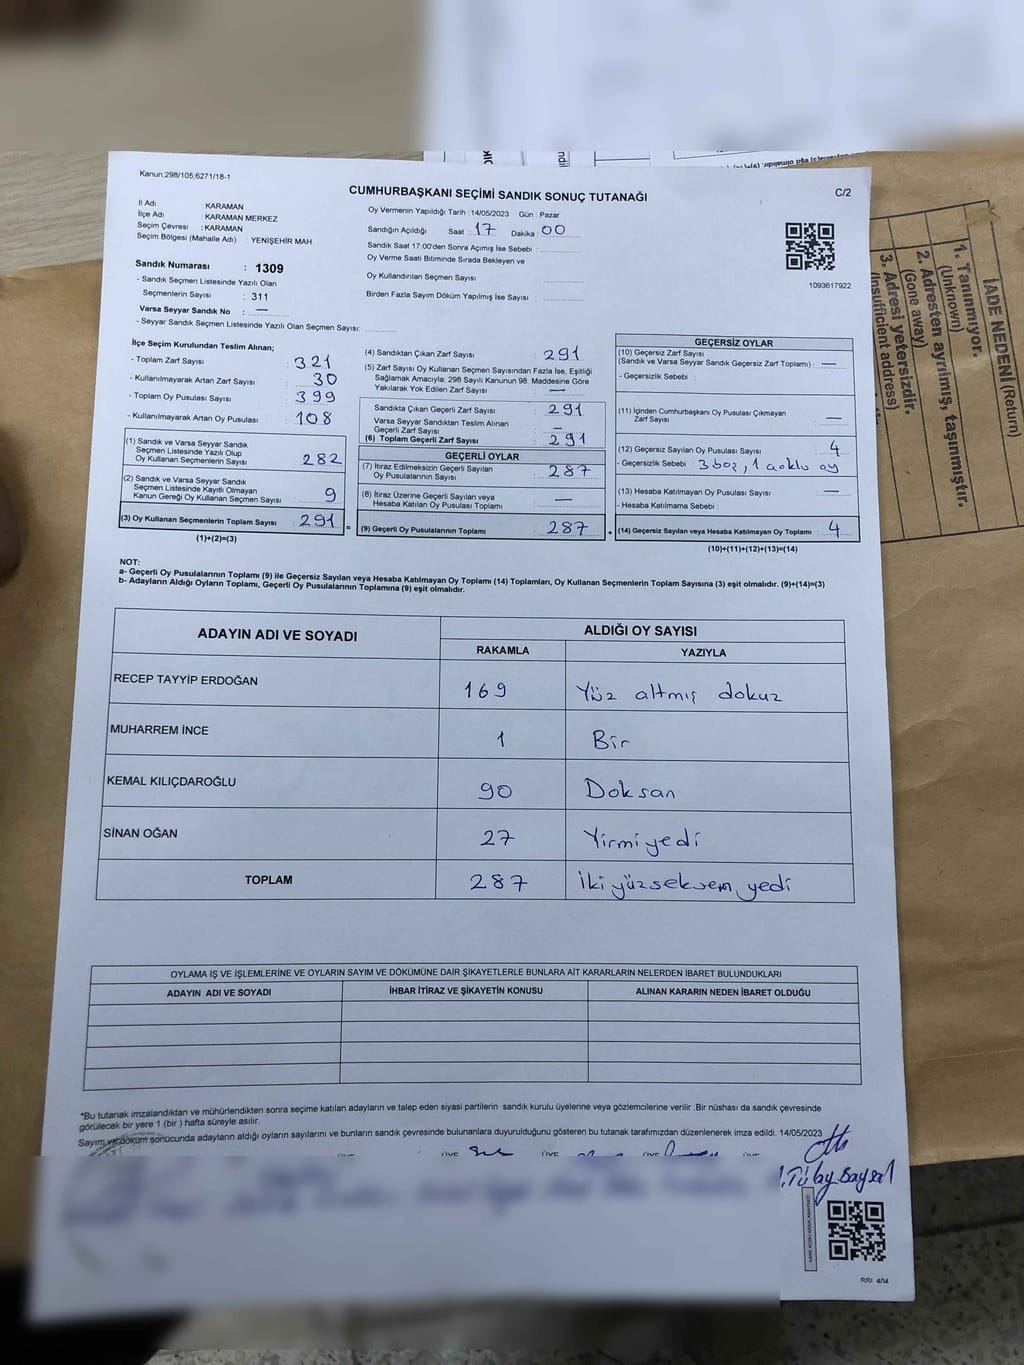 Kanun;298/105,6271/18-1
CUMHURBAŞKANI SEÇİMİ SANDIK SONUÇ TUTANAĞI
C/2
İl Adı : KARAMAN
İlçe Adı : KARAMAN MERKEZ
Seçim Çevresi : KARAMAN
Seçim Bölgesi (Mahalle Adı) : YENİŞEHİR MAH
Sandık Numarası : 1309
- Sandık Seçmen Listesinde Yazılı Olan
Seçmenlerin Sayısı : 311
Varsa Seyyar Sandık No : —
- Seyyar Sandık Seçmen Listesinde Yazılı Olan Seçmen Sayısı:
Oy Vermenin Yapıldığı Tarih : 14/05/2023 Gün : Pazar
Sandığın Açıldığı Saat : 17 Dakika : 00
Sandık Saat 17:00'den Sonra Açımış İse Sebebi :
Oy Verme Saati Bitiminde Sırada Bekleyen ve
Oy Kullandırılan Seçmen Sayısı :
Birden Fazla Sayım Döküm Yapılmış İse Sayısı :
1093617922
İlçe Seçim Kurulundan Teslim Alınan;
- Toplam Zarf Sayısı : 321
- Kullanılmayarak Artan Zarf Sayısı : 30
- Toplam Oy Pusulası Sayısı : 399
- Kullanılmayarak Artan Oy Pusulası : 108
(1) Sandık ve Varsa Seyyar Sandık
Seçmen Listesinde Yazılı Olup
Oy Kullanan Seçmenlerin Sayısı : 282
(2) Sandık ve Varsa Seyyar Sandık
Seçmen Listesinde Kayıtlı Olmayan
Kanun Gereği Oy Kullanan Seçmen Sayısı : 9
(3) Oy Kullanan Seçmenlerin Toplam Sayısı : 291
(1)+(2)=(3)
(4) Sandıktan Çıkan Zarf Sayısı : 291
(5) Zarf Sayısı Oy Kullanan Seçmen Sayısından Fazla İse, Eşitliği
Sağlamak Amacıyla; 298 Sayılı Kanunun 98. Maddesine Göre
Yakılarak Yok Edilen Zarf Sayısı : —
Sandıkta Çıkan Geçerli Zarf Sayısı : 291
Varsa Seyyar Sandıktan Teslim Alınan
Geçerli Zarf Sayısı : —
(6) Toplam Geçerli Zarf Sayısı : 291
GEÇERLİ OYLAR
(7) İtiraz Edilmeksizin Geçerli Sayılan
Oy Pusulalarının Sayısı : 287
(8) İtiraz Üzerine Geçerli Sayılan veya
Hesaba Katılan Oy Pusulası Toplamı : —
= (9) Geçerli Oy Pusulalarının Toplamı : 287
GEÇERSİZ OYLAR
(10) Geçersiz Zarf Sayısı
(Sandık ve Varsa Seyyar Sandık Geçersiz Zarf Toplamı) : —
- Geçersizlik Sebebi :
(11) İçinden Cumhurbaşkanı Oy Pusulası Çıkmayan
Zarf Sayısı : —
(12) Geçersiz Sayılan Oy Pusulası Sayısı : 4
- Geçersizlik Sebebi : 3 boş, 1 aoklu oy
(13) Hesaba Katılmayan Oy Pusulası Sayısı : —
- Hesaba Katılmama Sebebi :
+ (14) Geçersiz Sayılan veya Hesaba Katılmayan Oy Toplamı : 4
(10)+(11)+(12)+(13)=(14)
NOT:
a- Geçerli Oy Pusulalarının Toplamı (9) ile Geçersiz Sayılan veya Hesaba Katılmayan Oy Toplamı (14) Toplamları, Oy Kullanan Seçmenlerin Toplam Sayısına (3) eşit olmalıdır. (9)+(14)=(3)
b- Adayların Aldığı Oyların Toplamı, Geçerli Oy Pusulalarının Toplamına (9) eşit olmalıdır.
ADAYIN ADI VE SOYADI
ALDIĞI OY SAYISI
RAKAMLA YAZIYLA
RECEP TAYYİP ERDOĞAN 169 Yüz altmış dokuz
MUHARREM İNCE 1 Bir
KEMAL KILIÇDAROĞLU 90 Doksan
SİNAN OĞAN 27 Yirmi yedi
TOPLAM 287 İki yüzseksem yedi
OYLAMA İŞ VE İŞLEMLERİNE VE OYLARIN SAYIM VE DÖKÜMÜNE DAİR ŞİKAYETLERLE BUNLARA AİT KARARLARIN NELERDEN İBARET BULUNDUKLARI
ADAYIN ADI VE SOYADI İHBAR İTİRAZ VE ŞİKAYETİN KONUSU ALINAN KARARIN NEDEN İBARET OLDUĞU
*Bu tutanak imzalandıktan ve mühürlendikten sonra seçime katılan adayların ve talep eden siyasi partilerin sandık kurulu üyelerine veya gözlemcilerine verilir .Bir nüshası da sandık çevresinde
görülecek bir yere 1 (bir ) hafta süreyle asılır.
Sayım ve döküm sonucunda adayların aldığı oyların sayılarını ve bunların sandık çevresinde bulunanlara duyurulduğunu gösteren bu tutanak tarafımızdan düzenlenerek imza edildi. 14/05/2023
Tülay Baysal
İADE NEDENİ (Return)
1. Tanınmıyor.
(Unknown)
2. Adresten ayrılmış, taşınmıştır.
(Gone away)
3. Adresi yetersizdir.
(Insufficient address)